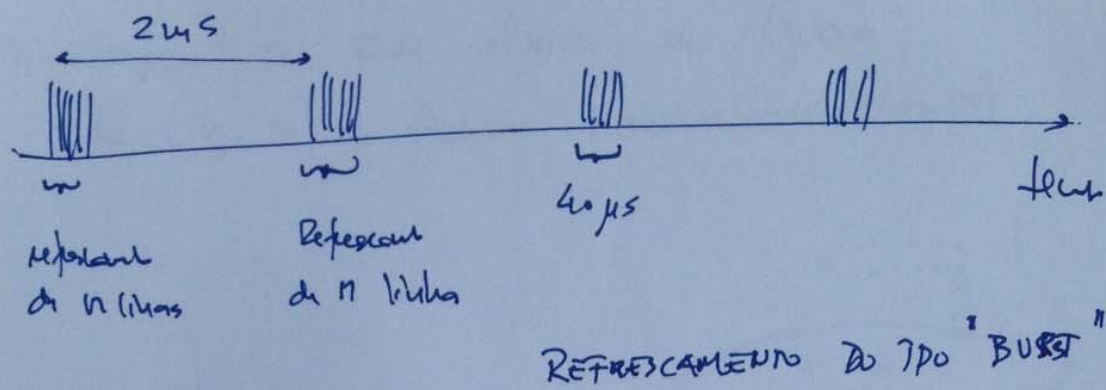 2 mS
40 μs
tempo
refrescamento
de n linhas
Refrescamento
de n linha
REFRESCAMENTO DO TIPO "BURST"